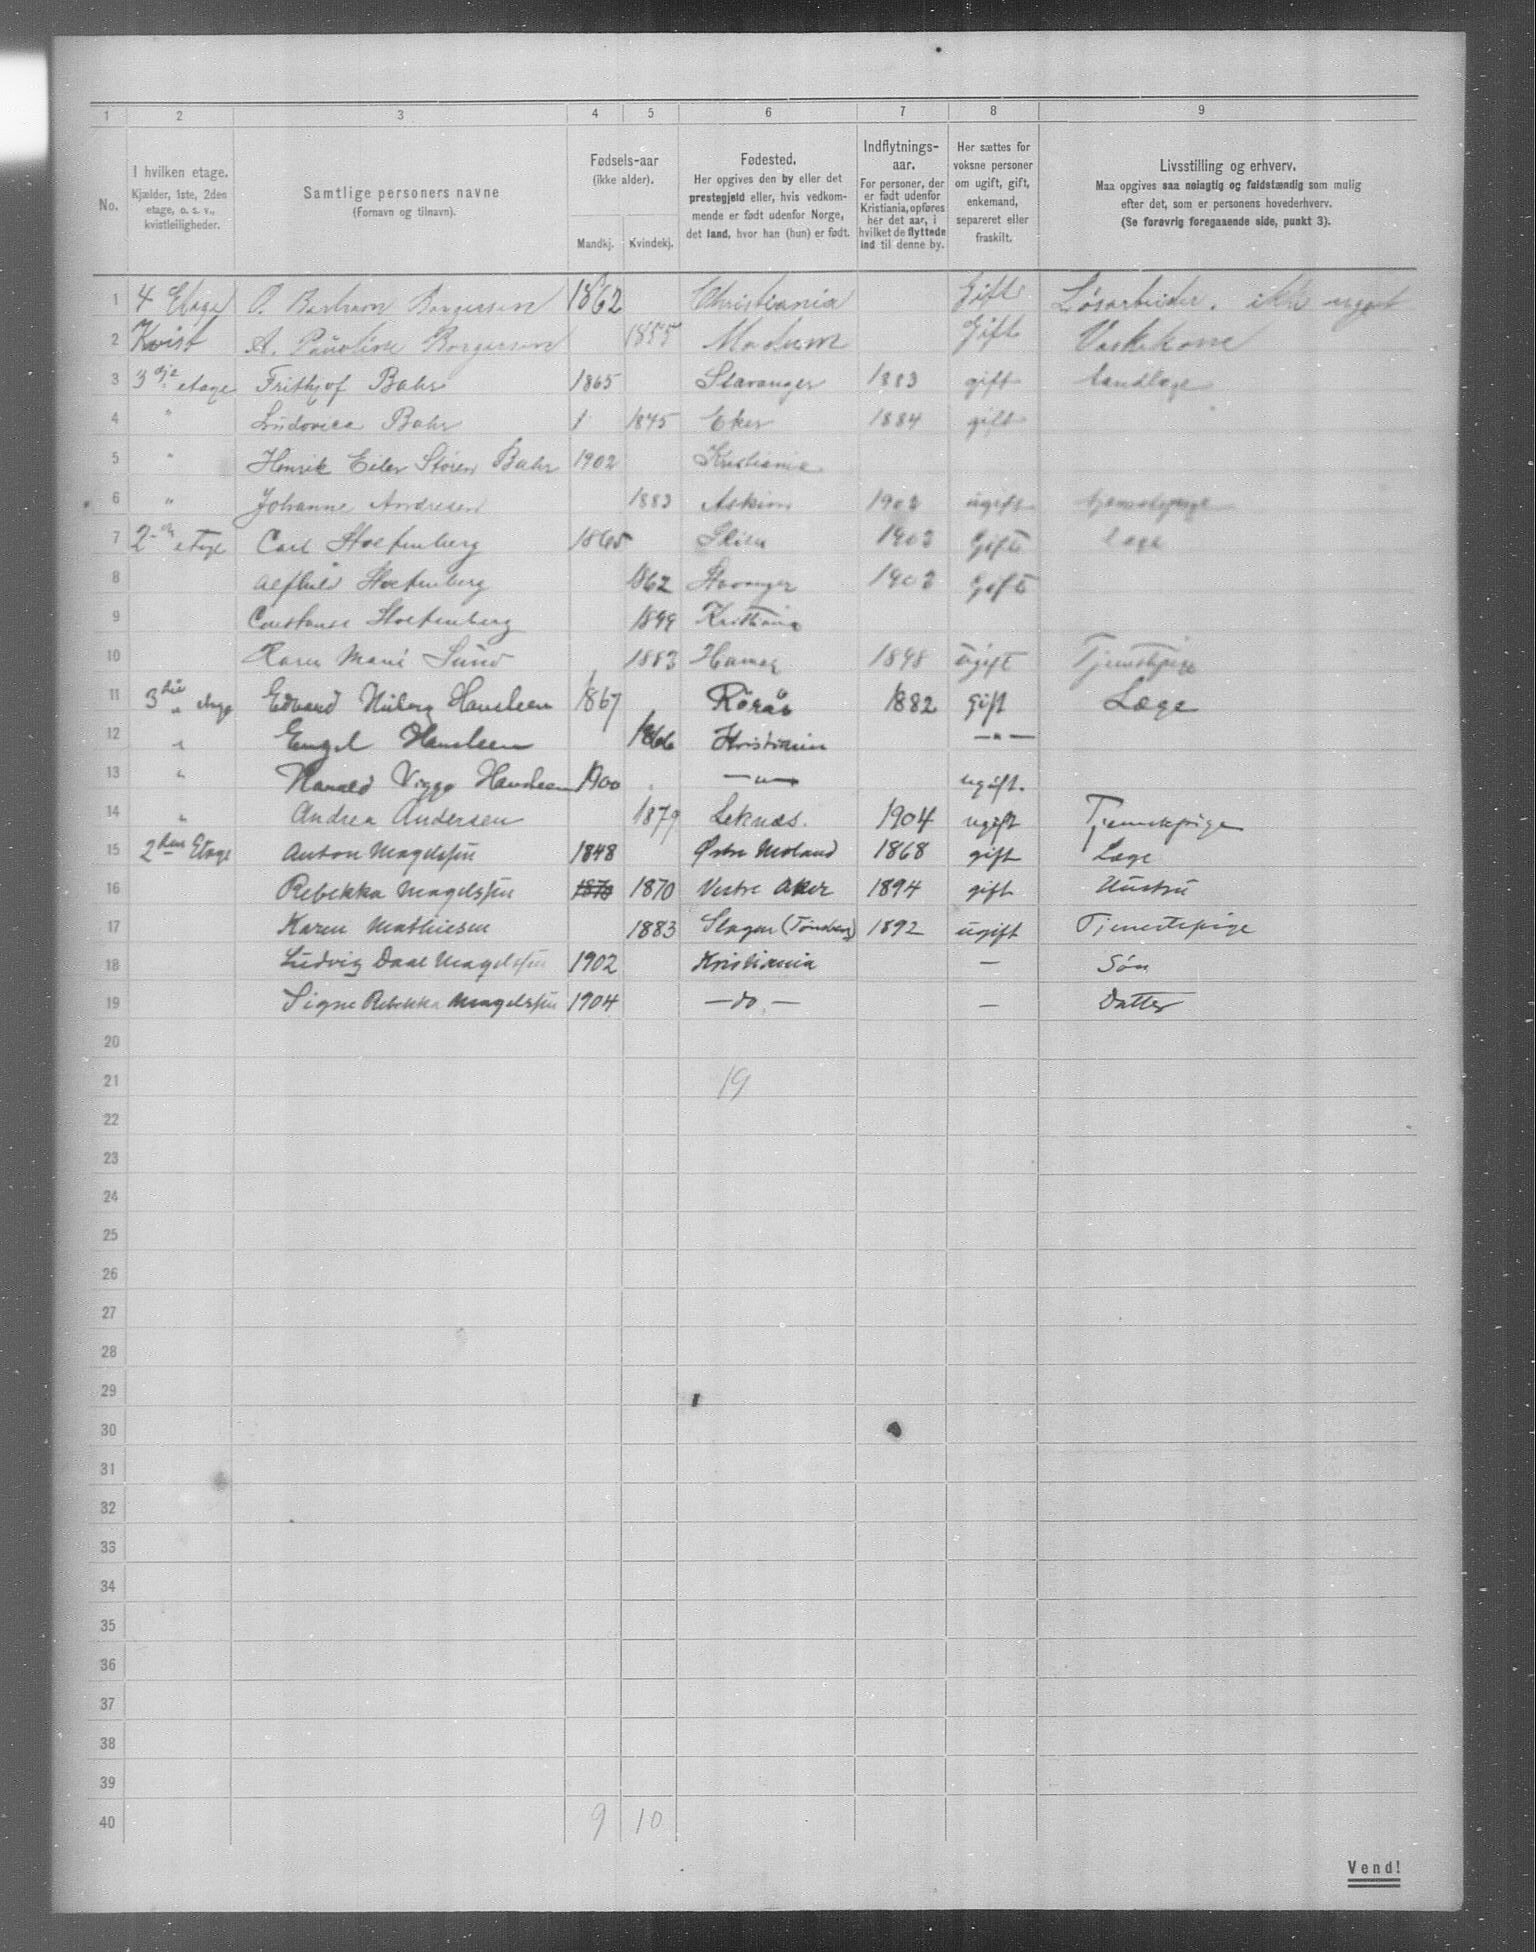 1 2 3 4 5 6 7 8 9
No.
I hvilken etage.
Kjælder, 1ste, 2den
etage, o. s. v.,
kvistleiligheder.
Samtlige personers navne
(Fornavn og tilnavn).
Fødsels-aar
(ikke alder).
Mandkj. Kvindekj.
Fødested.
Her opgives den by eller det
prestegjeld eller, hvis vedkom-
mende er født udenfor Norge,
det land, hvor han (hun) er født.
Indflytnings-
aar.
For personer, der
er født udenfor
Kristiania, opføres
her det aar, i
hvilket de flyttede
ind til denne by.
Her sættes for
voksne personer
om ugift, gift,
enkemand,
separeret eller
fraskilt.
Livsstilling og erhverv.
Maa opgives saa nøiagtig og fuldstændig som mulig
efter det, som er personens hovederhverv.
(Se forøvrig foregaaende side, punkt 3).
1 4 Etage O. Borgersen 1862 Christiania Gift Løsarbeider. ikke
2 Kvist A. Pauline Borgersen 1855 Modum Gift Vaskekone
3 3dje etage Frithjof Bahr 1865 Stavanger 1883 gift tandlæge
4 " Ludovica Bahr 1 1875 Eker 1884 gift
5 " Henrik Eiler Støren Bahr 1902 Kristiania
6 " Johanne Andresen 1883 Askim 1902 ugift tjenestepige
7 2den etage Carl Stoltenberg 1865 Skien 1902 Gift Læge
8 Alfhild Stoltenberg 1862 Stavanger 1902 Gift
9 Constanse Stoltenberg 1899 Kristiania
10 Karen Marie Sund 1883 Hamar 1898 ugift Tjenestpige
11 3die etage Edvard Hansteen 1867 Rörås 1882 gift Læge
12 " Engel Hansteen 1866 Kristiania —"—
13 " Harald Viggo Hansteen 1900 —"— ugift.
14 " Andrea Andersen 1879 Leknæs. 1904 ugift Tjenestepige
15 2den Etage Anton Magelssen 1848 Østre Moland 1868 gift Læge
16 Rebekka Magelssen 1870 1870 Vestre Aker 1894 gift Hustru
17 Karen Mathiesen 1883 Slagen (Tønsberg) 1892 ugift Tjenestepige
18 Ludvig Daae Magelssen 1902 Kristiania — Søn
19 Signe Rebekka Magelssen 1904 —do— — Datter
20
21 19
22
23
24
25
26
27
28
29
30
31
32
33
34
35
36
37
38
39
40 9 10
Vend!